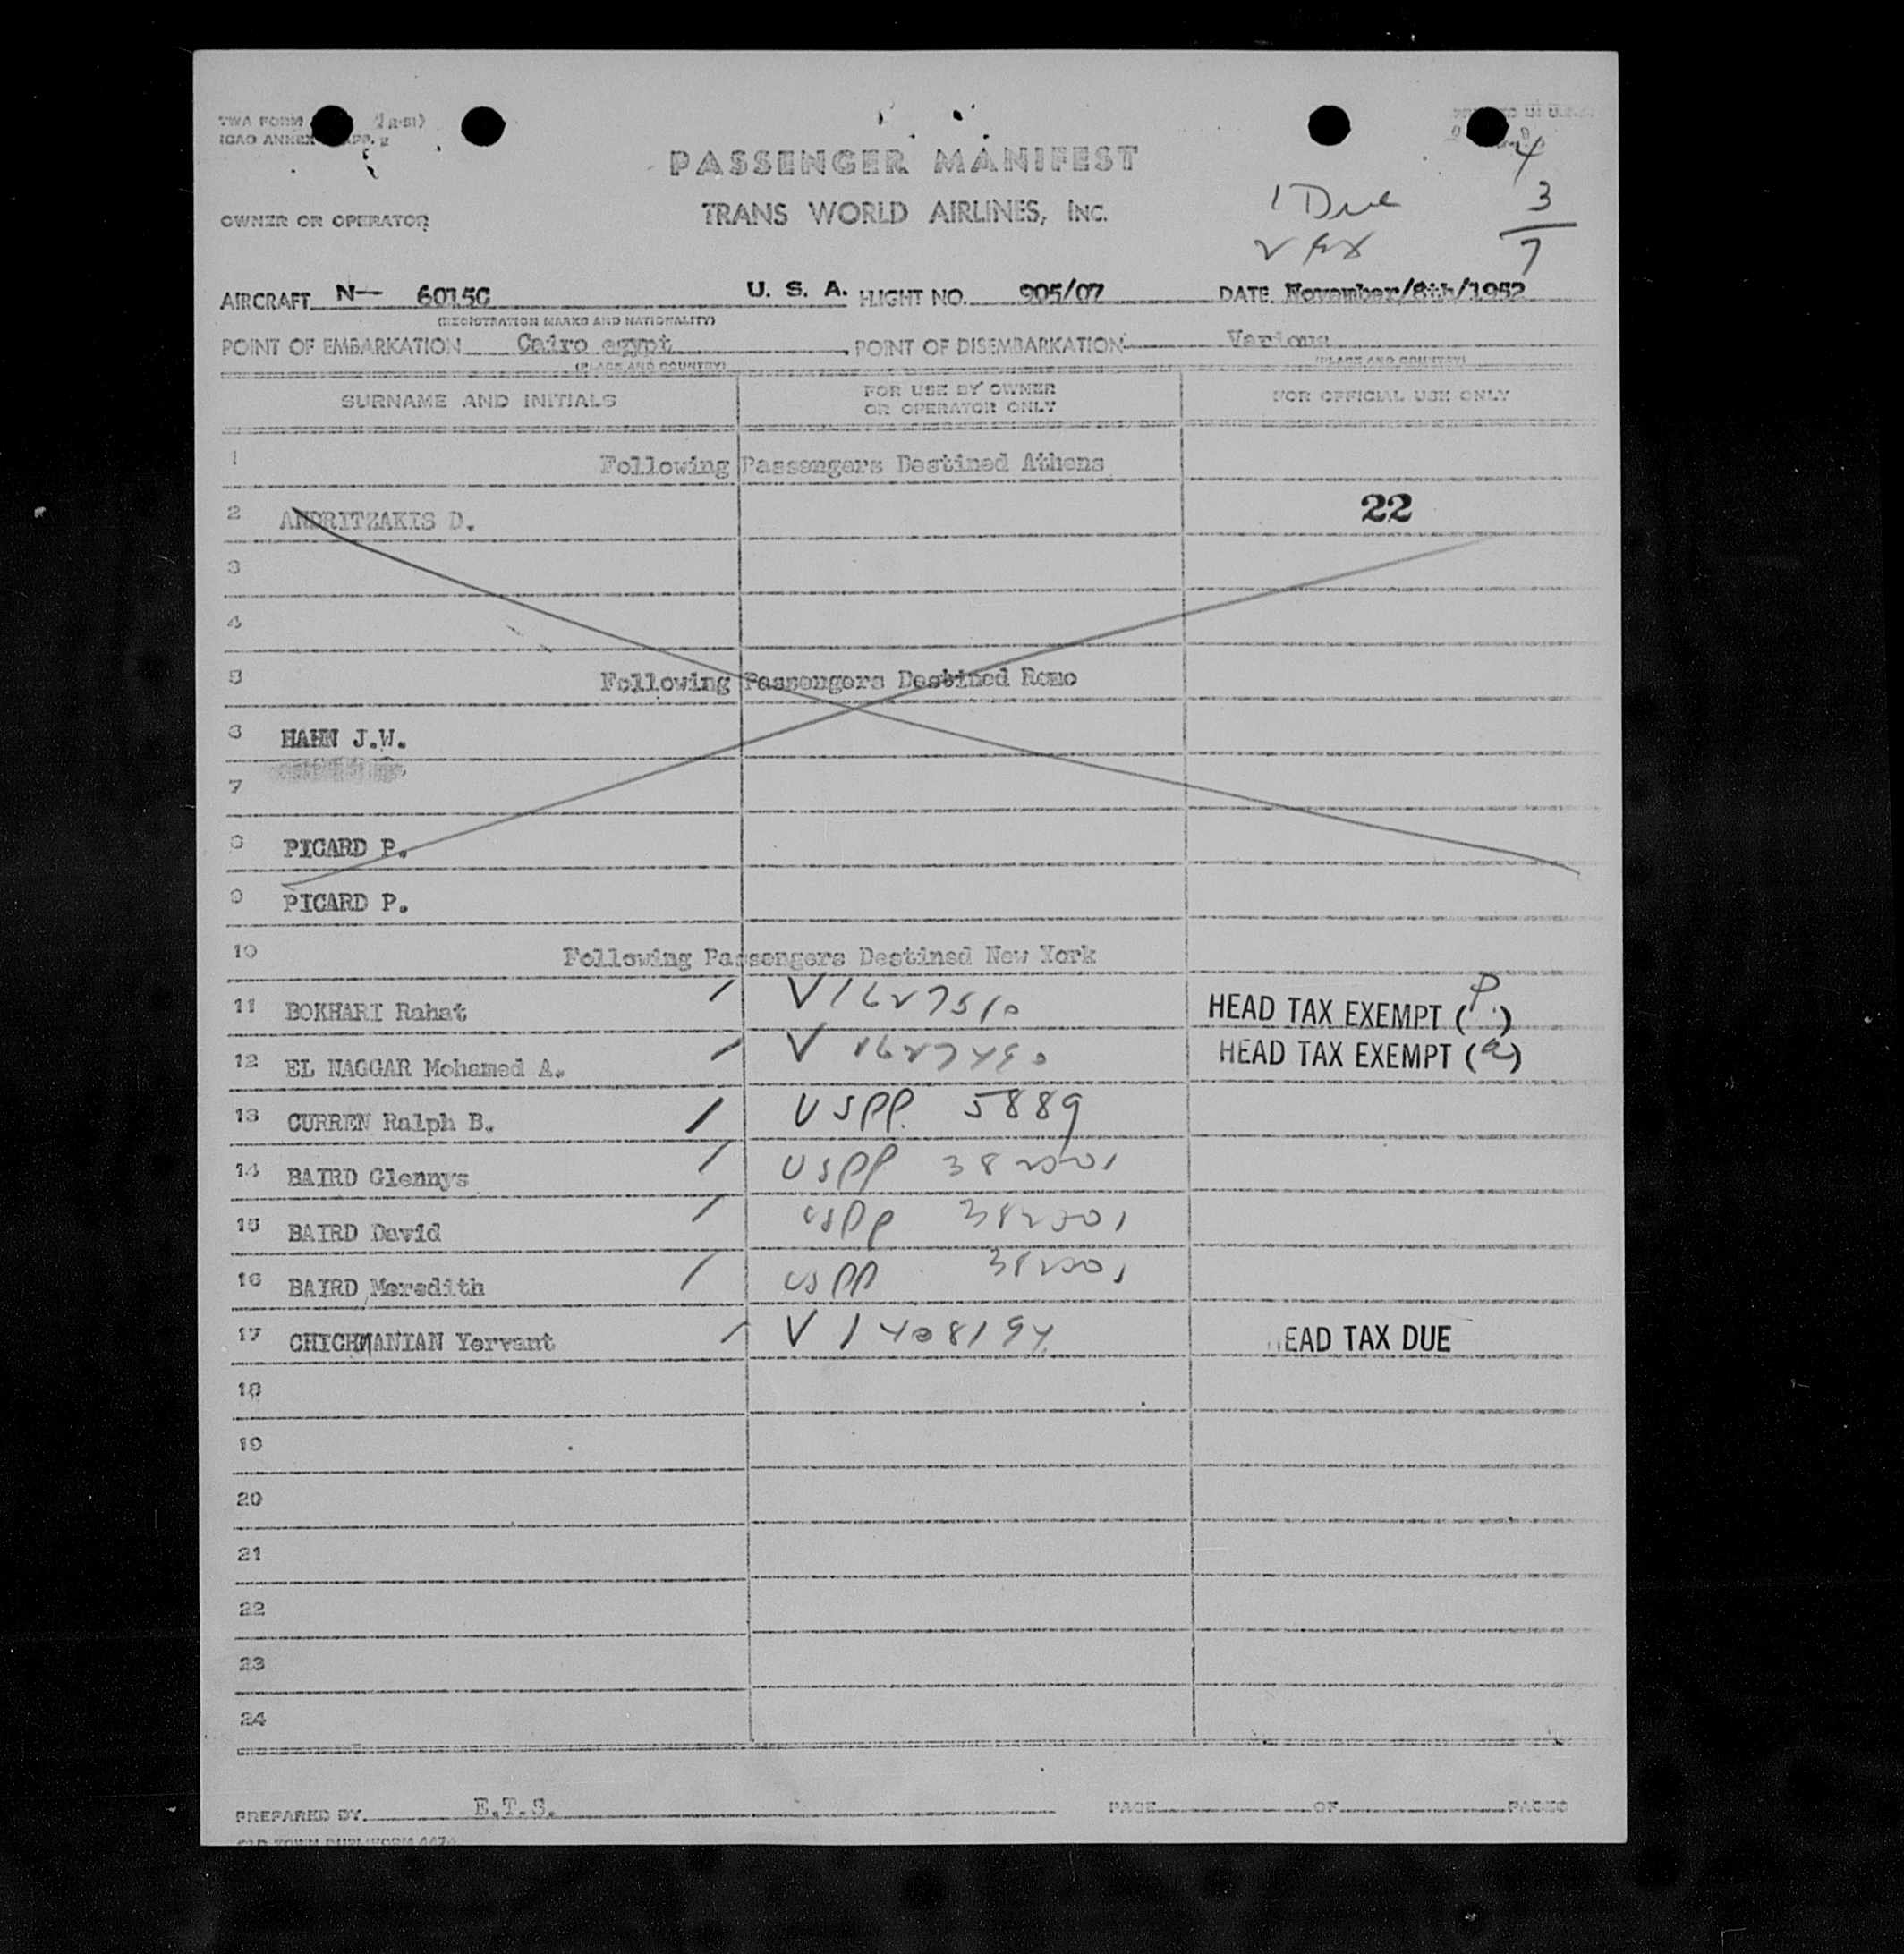 TWA FORM
ICAO ANNEX APP. 2
4
PASSENGER MANIFEST
1 Due
3
OWNER OR OPERATOR
TRANS WORLD AIRLINES, INC.
2 EX
7
AIRCRAFT N— 6015C U. S. A. FLIGHT NO. 905/07 DATE November/8th/1952
(REGISTRATION MARKS AND NATIONALITY)
POINT OF EMBARKATION Cairo egypt POINT OF DISEMBARKATION Various
(PLACE AND COUNTRY) (PLACE AND COUNTRY)
SURNAME AND INITIALS FOR USE BY OWNER OR OPERATOR ONLY FOR OFFICIAL USE ONLY
1 Following Passengers Destined Athens
2 ANDRITZAKIS D. 22
3
4
5 Following Passengers Destined Rome
6 HAHN J.W.
7
8 PICARD P.
9 PICARD P.
10 Following Passengers Destined New York
11 BOKHARI Rahat / V1627510 HEAD TAX EXEMPT (P)
12 EL NAGGAR Mohamed A. / V 1627490 HEAD TAX EXEMPT (a)
13 CURREN Ralph B. / USPP. 5889
14 BAIRD Glennys / USPP 382001
15 BAIRD David / USPP 382001
16 BAIRD Meredith / USPP 382001
17 CHICHMANIAN Yervant / V 1408194 EAD TAX DUE
18
19
20
21
22
23
24
PREPARED BY E.T.S. PAGE OF PAGES